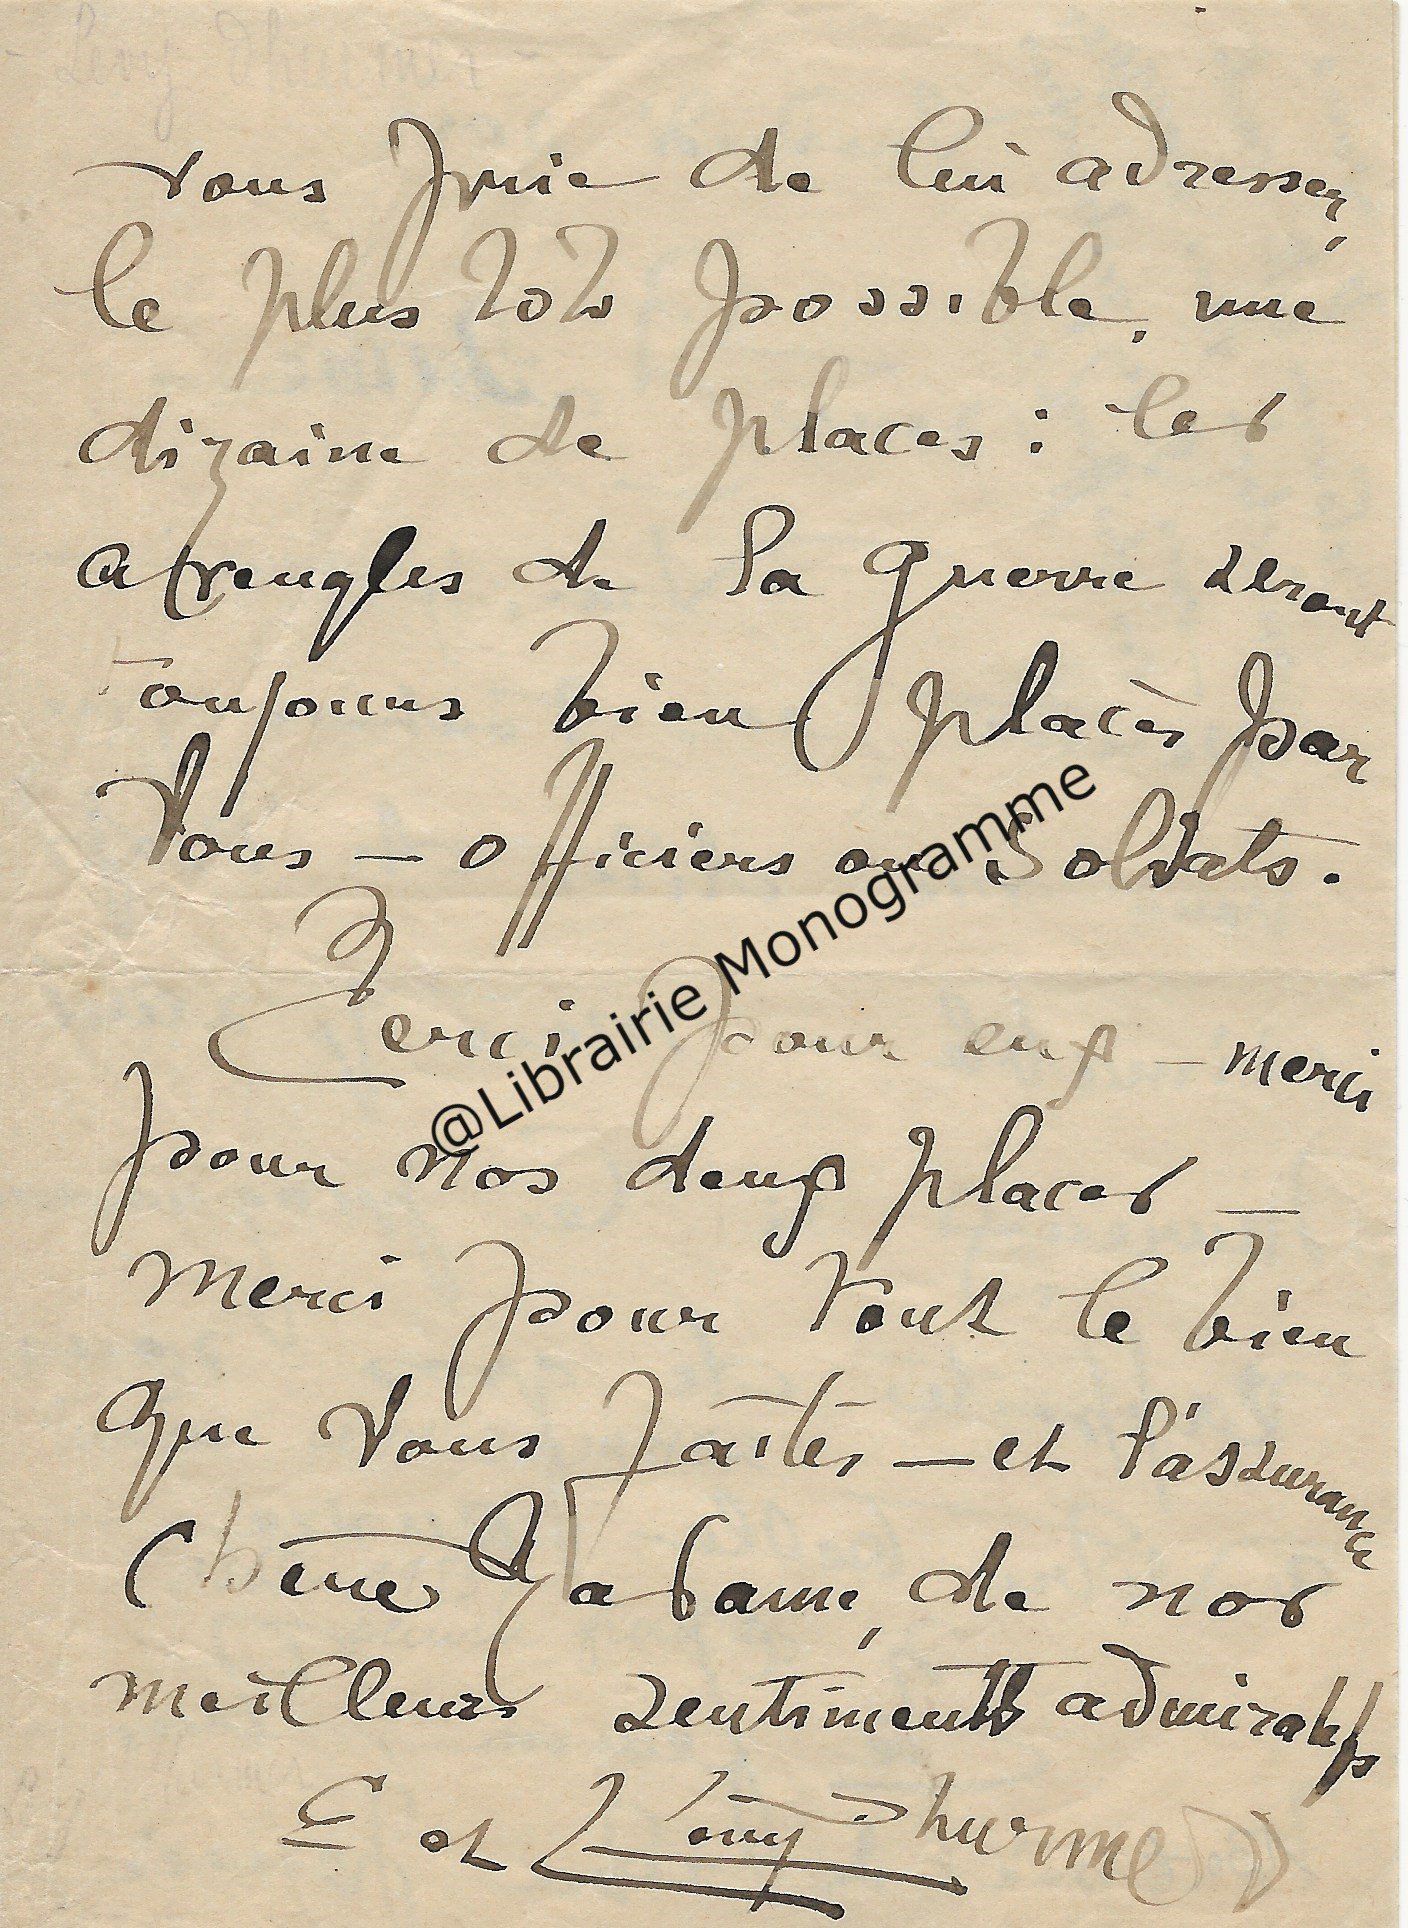 vous prie de lui adresser,
le plus tôt possible, une
dizaine de places : les
aveugles de la guerre seront
toujours bien placés par
vous — officiers ou soldats.
Merci pour eux — merci
pour nos deux places —
merci pour tout le bien
que vous faites — et l'assurance
chère Madame, de nos
meilleurs sentiments admiratifs
E et Lévy Dhurmer
@Librairie Monogramme